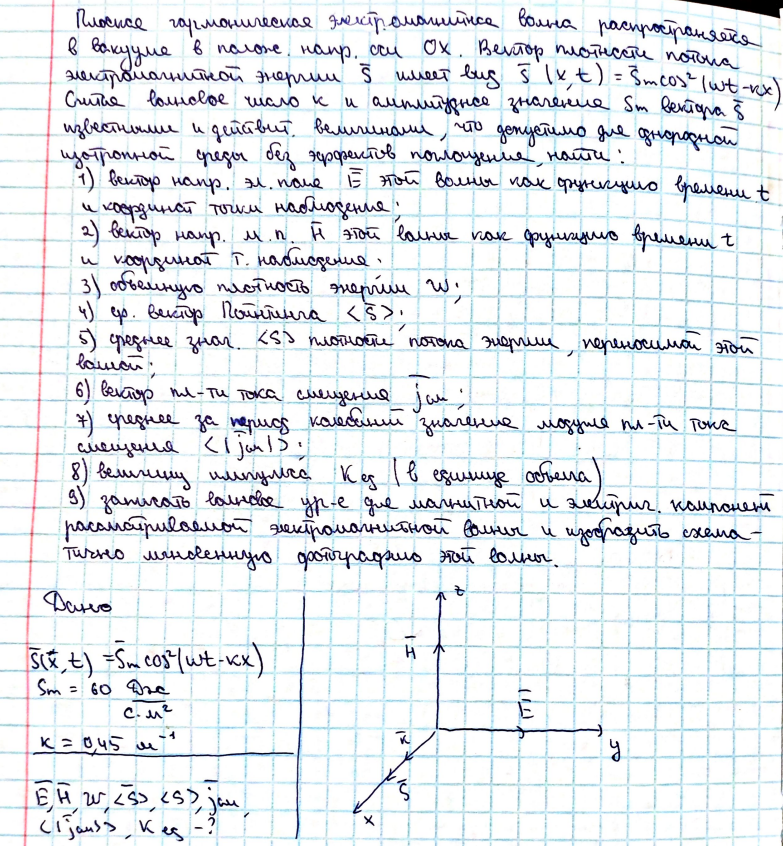 Плоская гармоническая электромагнитная волна распространяется
в вакууме в полож. напр. оси OX. Вектор плотности потока
электромагнитной энергии S̄ имеет вид S̄(x,t) = S̄m cos²(ωt-кx)
Считая волновое число к и амплитудное значение Sm вектора S̄
известными и действит. величинами, что допустимо для однородной
изотропной среды без эффектов поглощения, найти:
1) вектор напр. эл. поля Ē этой волны как функцию времени t
и координат точки наблюдения;
2) вектор напр. м.п. H̄ этой волны как функцию времени t
и координат т. наблюдения;
3) объемную плотность энергии w;
4) ср. вектор Пойнтинга <S̄>;
5) среднее знач. <S> плотности потока энергии, переносимой этой
волной;
6) вектор пл-ти тока смещения j̄см;
7) среднее за период колебаний значение модуля пл-ти тока
смещения <|j̄см|>;
8) величину импульса Kед (в единице объема)
9) записать волновое ур-е для магнитной и электрич. компонент
рассматриваемой электромагнитной волны и изобразить схема-
тично мгновенную фотографию этой волны.
Дано
S̄(x̄,t) = S̄m cos²(ωt-кx)
Sm = 60 Дж/с·м²
к = 0,45 м⁻¹
Ē, H̄, w, <S̄>, <S>, j̄см,
<|j̄см|>, Kед -?
z
H̄
Ē
y
к̄
S̄
x